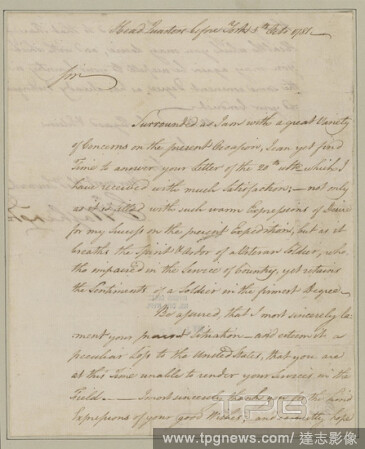 Head Quarters before York 5th Octr 1781
Sir
Surrounded as I am with a great Variety
of Concerns on the present Occasion, I can yet find
Time to answer your Letter of the 20th ulto which I
have received with much Satisfaction; — not only
as it is filled with such warm Expressions of Desire
for my Success on the present Expedition, but as it
breaths the Spirit & Ardor of a Veteran Soldier, who
tho impaired in the Service of Country, yet retains
the Sentiments of a Soldier in the firmest Degree —
Be assured, that I most sincerely la-
ment your present Situation — and esteem it a
peculiar Loss to the United States, that you are
at this Time unable to render your Services in the
Field. — I most sincerely thank you for the kind
Expressions of your good Wishes, and earnestly hope
TPG
www.tpgnews.com/達志影像